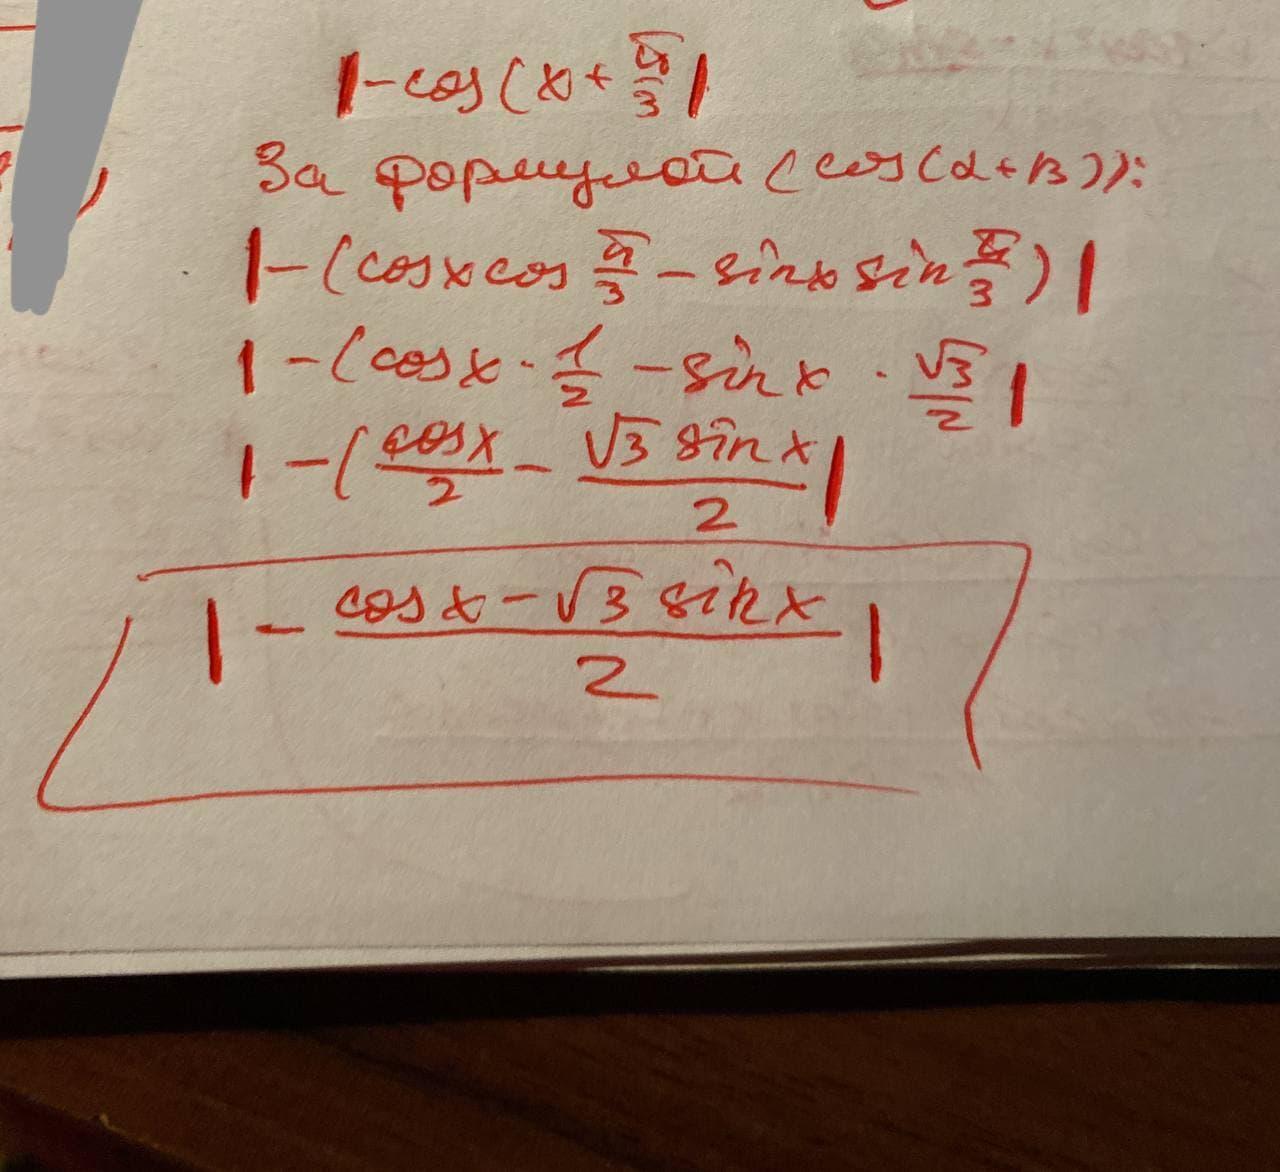 |-cos(x+π/3|
За формулой (cos(α+β)):
|-(cosxcos π/3 - sinx sin π/3)|
|-(cosx · 1/2 - sinx · √3/2|
|-(cosx/2 - √3 sinx/2|
|- cosx-√3 sinx/2 |